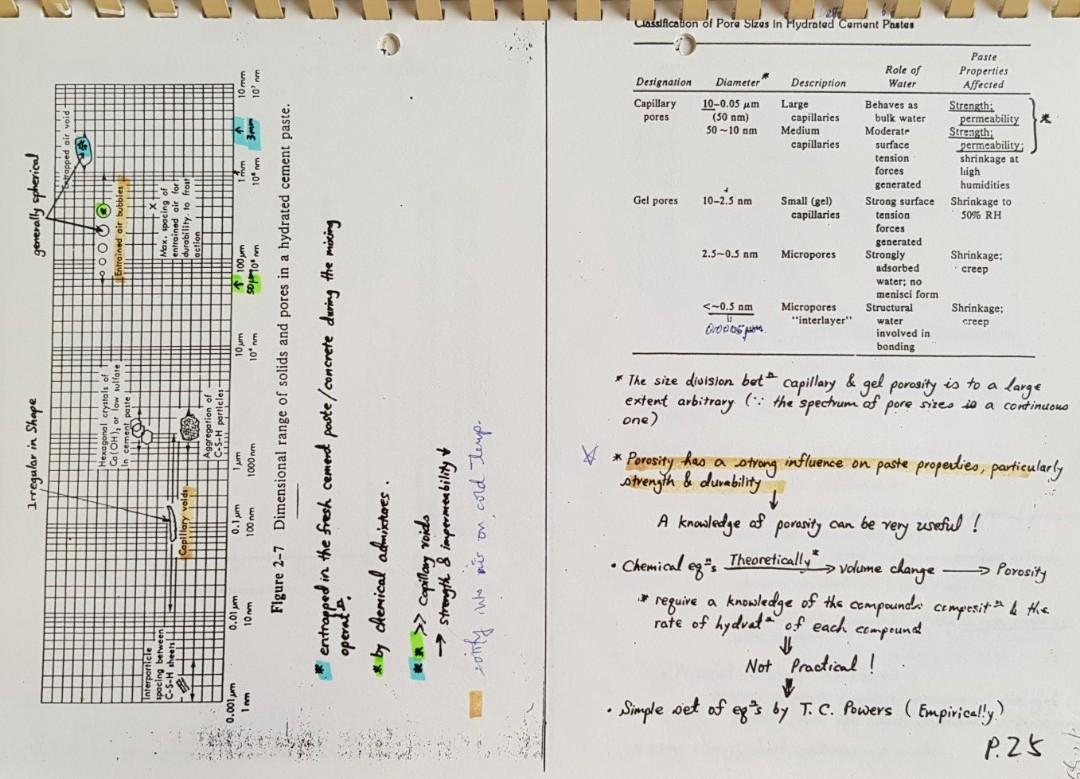 generally spherical
Irregular in Shape
Entrapped air void
Entrained air bubbles
Max. spacing of
entrained air for
durability to frost
action
Hexagonal crystals of
Ca(OH)₂ or low sulfate
in cement paste
Aggregation of
C-S-H particles
Capillary voids
Interparticle
spacing between
C-S-H sheets
0.001 μm 0.01 μm 0.1 μm 1 μm 10 μm 100 μm 1 mm 10 mm
1 nm 10 nm 100 nm 1000 nm 10⁴ nm 10⁵ nm 10⁶ nm 10⁷ nm
50 μm
3mm
Figure 2-7 Dimensional range of solids and pores in a hydrated cement paste.
* entrapped in the fresh cement paste/concrete during the mixing
operatⁿ.
* by chemical admixtures.
* * >> Capillary voids
→ strength & impermeability ↓
on cold temp.
Classification of Pore Sizes in Hydrated Cement Pastes
Designation Diameter* Description Role of Water Paste Properties Affected
Capillary pores 10–0.05 μm (50 nm) Large capillaries Behaves as bulk water Strength; permeability *
50 ~10 nm Medium capillaries Moderate surface tension forces generated Strength; permeability; shrinkage at high humidities
Gel pores 10–2.5 nm Small (gel) capillaries Strong surface tension forces generated Shrinkage to 50% RH
2.5–0.5 nm Micropores Strongly adsorbed water; no menisci form Shrinkage; creep
<~0.5 nm Micropores "interlayer" Structural water involved in bonding Shrinkage; creep
* The size division betⁿ capillary & gel porosity is to a large
extent arbitrary (∵ the spectrum of pore sizes is a continuous
one)
* Porosity has a strong influence on paste properties, particularly
strength & durability
A knowledge of porosity can be very useful !
• Chemical eqⁿs Theoretically* → volume change → Porosity
* require a knowledge of the compounds compositⁿ & the
rate of hydratⁿ of each compound
Not Practical !
• Simple set of eqⁿs by T. C. Powers (Empirically)
P.25